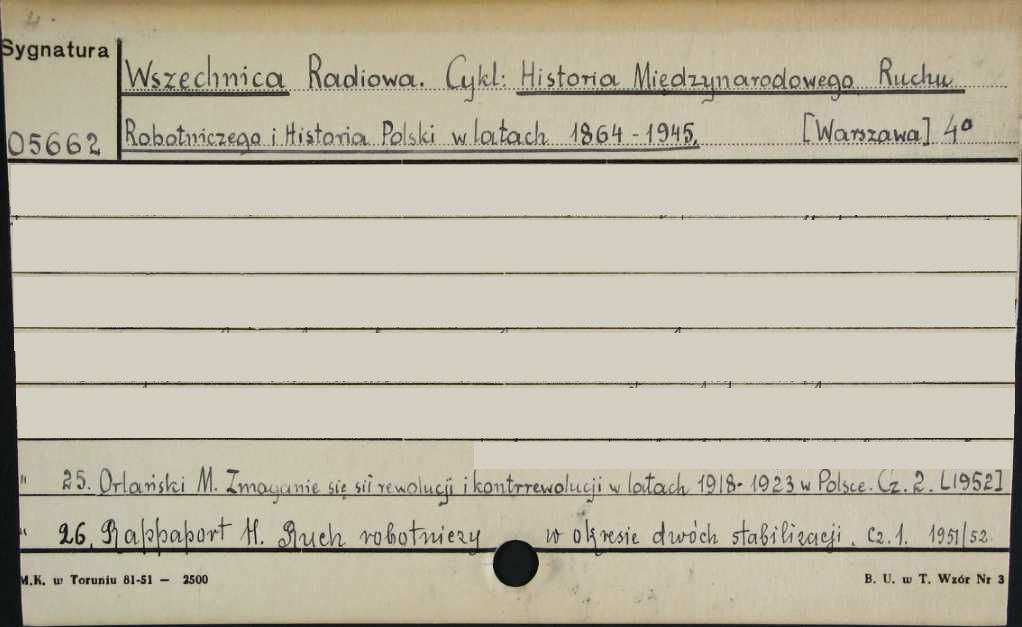 4.
Sygnatura
Wszechnica Radiowa. Cykl: Historia Międzynarodowego Ruchu
05662
Robotniczego i Historia Polski w latach 1864-1945. [Warszawa] 4°
" 25. Orlański M. Zmaganie się sił rewolucji i kontrrewolucji w latach 1918-1923 w Polsce. Cz. 2. [1952]
" 26. Rappaport H. Ruch robotniczy w okresie dwóch stabilizacji. Cz. 1. 1951/52
M.K. w Toruniu 81-51 — 2500
B. U. w T. Wzór Nr 3